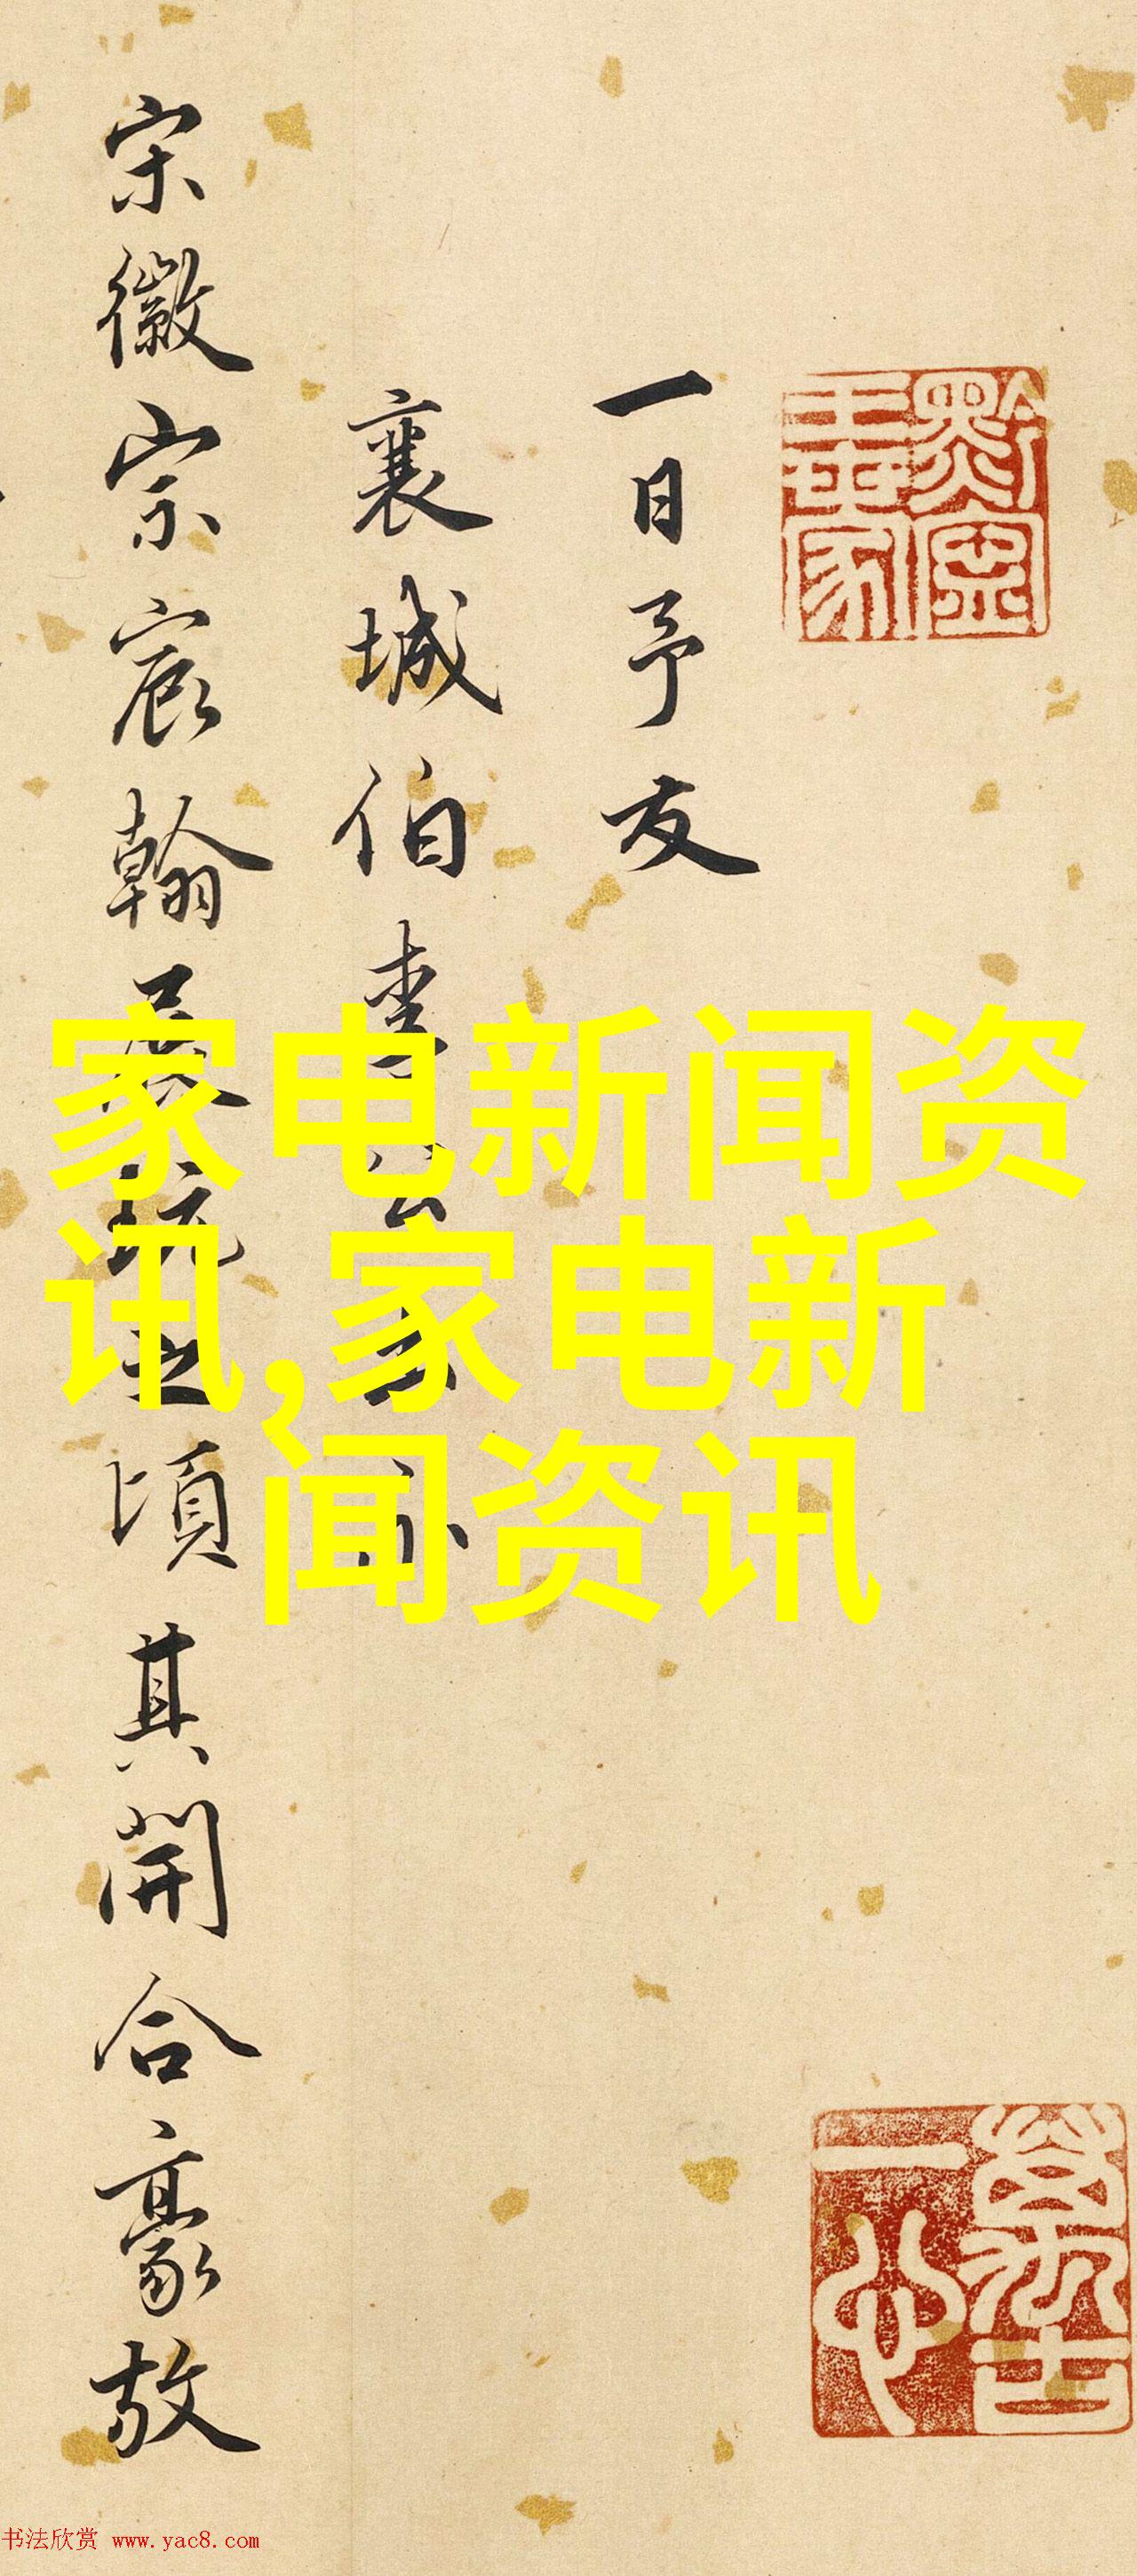 一日予友
襄城伯李公
宋徽宗宸翰展玩之頃其開合豪放
家电新闻资
讯,家电新
闻资讯
萬古一心
书法欣赏 www.yac8.com